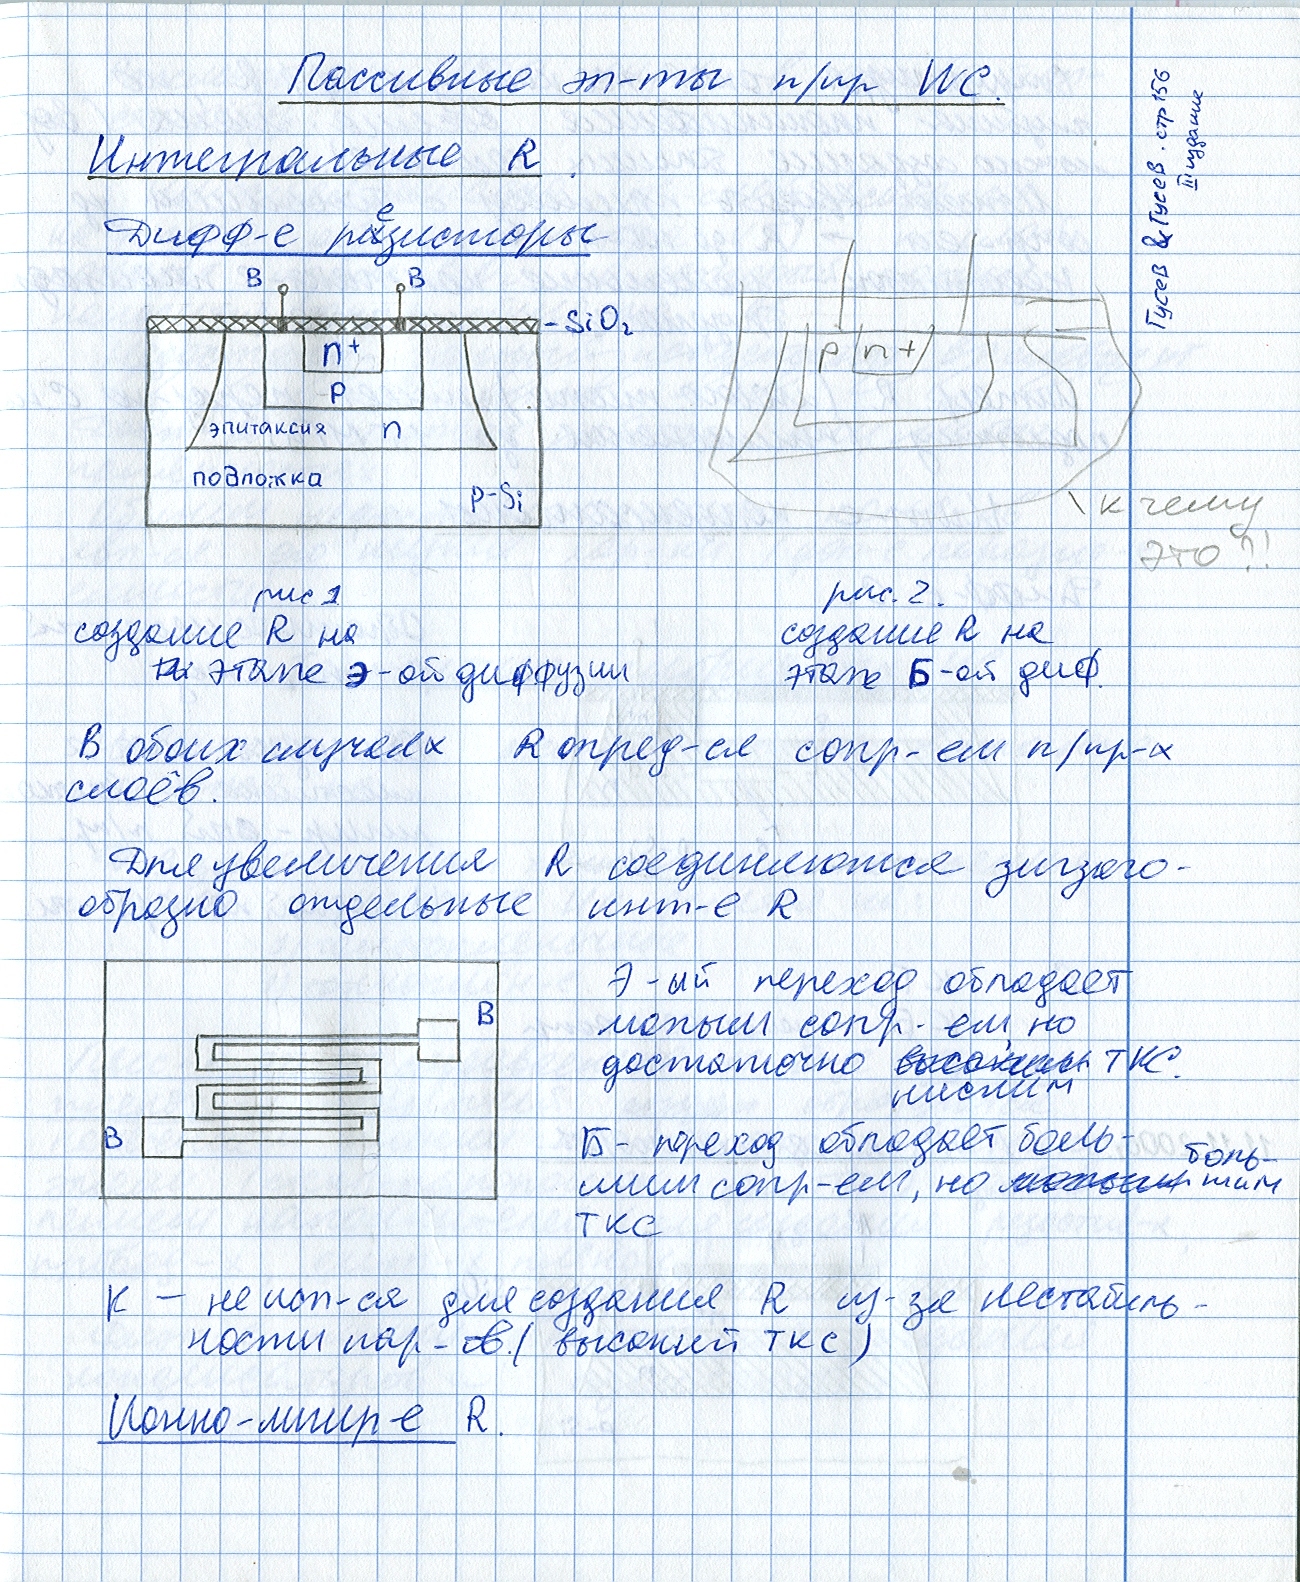 Пассивные эл-ты п/пр ИС.
Гусев & Гусев. стр 156
III издание
Интегральные R.
Дифф-е резисторы
В В
- SiO2
n+
p
эпитаксия n
подложка
p-Si
p n+
к чему
это?!!
рис 1
создание R на
этапе Э-ой диффузии
рис. 2.
создание R на
этапе Б-ой диф.
В обоих случаях R опред-ся сопр-ем п/пр-х
слоёв.
Для увеличения R соединяются зигзаго-
образно отдельные инт-е R
В
В
Э-ый переход обладает
малым сопр-ем, но
достаточно высоким ТКС.
низким
Б- переход обладает боль-
шим сопр-ем, но боль-
шим
ТКС
К – не исп-ся для создания R из-за нестабиль-
ности пар-ов (высокий ТКС)
Ионно-легир-е R.